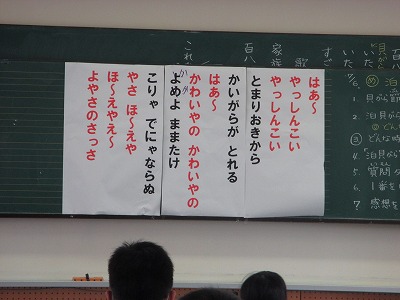 はあ〜
やっしんこい
やっしんこい
とまりおきから
かいがらが とれる
はあ〜
かわいやの かわいやの
よめよ ままたけ
こりゃ でにゃならぬ
やさ ほ〜えや
ほ〜えやえ〜
よやさのさっさ
貝がら
いた
いた
すご
家族
百八
これ
め
貝がら節
2. 泊貝から
どん
3 どんな時
4. 泊貝がら
5. 質問
6. 1番を
7. 感想を